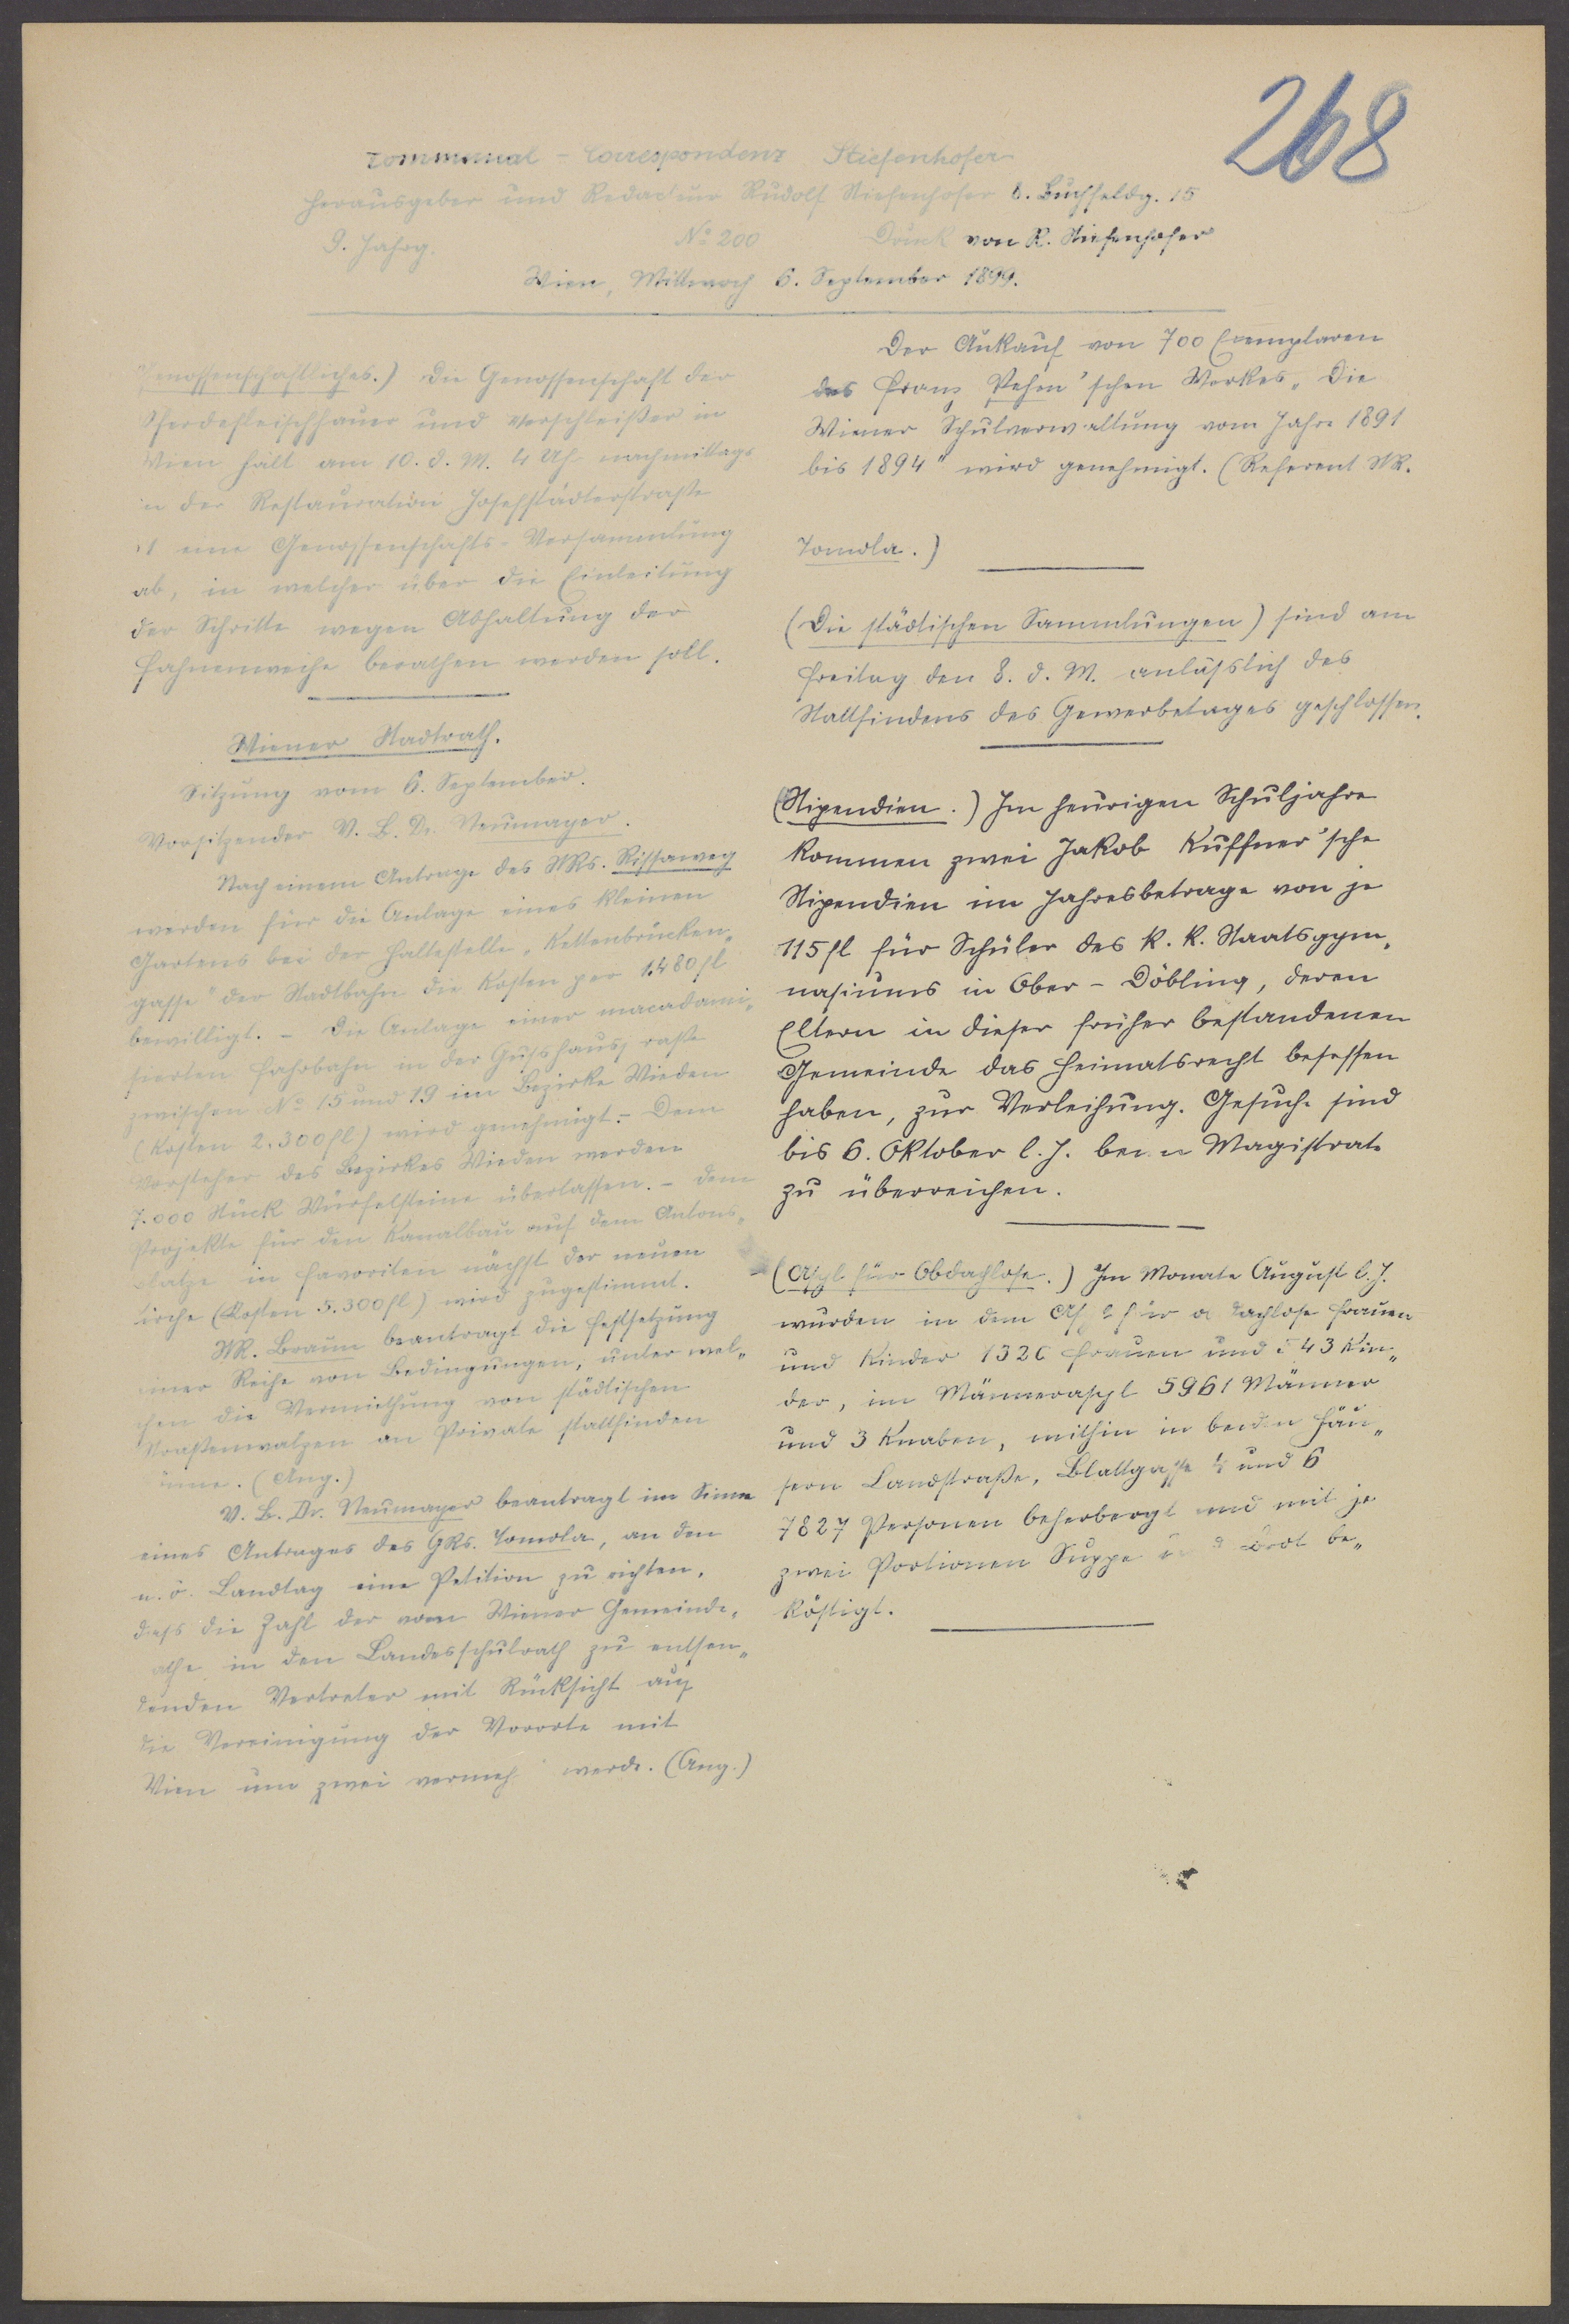 268
Communal-Correspondenz Stiefenhofer
Herausgeber und Redacteur Rudolf Stiefenhofer 8. Buchfeldg. 15
9. Jahrg. No 200 Druck von R. Stiefenhofer
Wien, Mittwoch 6. September 1899.
(Genossenschaftliches.) Die Genossenschaft der
Pferdefleischhauer und Verschleißer in
Wien hält am 10. d. M. 4 Uhr nachmittags
in der Restauration Josefstädterstraße
eine Genossenschafts-Versammlung
ab, in welcher über die Einleitung
der Schritte wegen Abhaltung der
Fahnenweihe berathen werden soll.
Wiener Stadtrath.
Sitzung vom 6. September.
Vorsitzender V. B. Dr. Neumayer.
Nach einem Antrage des StRs. Rissaweg
werden für die Anlage eines kleinen
Gartens bei der Haltestelle „Kettenbrücken„
gasse" der Stadtbahn die Kosten per 1.480 fl
bewilligt. - Die Anlage einer macadami„
sierten Fahrbahn in der Gusshausstraße
zwischen No 15 und 19 im Bezirke Wieden
(Kosten 2.300 fl) wird genehmigt. - Dem
Vorsteher des Bezirkes Wieden werden
7.000 Stück Würfelsteine überlassen. - Dem
Projekte für den Kanalbau auf dem Antons„
platze in Favoriten nächst der neuen
Kirche (Kosten 5.300 fl) wird zugestimmt.
StR. Braun beantragt die Festsetzung
einer Reihe von Bedingungen, unter wel„
chen die Vermiethung von städtischen
Straßenwalzen an Private stattfinden
könne. (Ang.)
V. B. Dr. Neumayer beantragt im Sinne
eines Antrages des GRs. Tomola, an den
n. ö. Landtag eine Petition zu richten,
dass die Zahl der vom Wiener Gemeinde„
rathe in den Landesschulrath zu entsen„
denden Vertreter mit Rücksicht auf
die Vereinigung der Vororte mit
Wien um zwei vermehrt werde. (Ang.)
Der Ankauf von 700 Exemplaren
des Franz Pehm'schen Werkes „Die
Wiener Schulverwaltung vom Jahre 1891
bis 1894" wird genehmigt. (Referent StR.
Tomola.)
(Die städtischen Sammlungen) sind am
Freitag den 8. d. M. anlässlich des
Stattfindens des Gewerbetages geschlossen.
(Stipendien.) Im heurigen Schuljahre
kommen zwei Jakob Kuffner'sche
Stipendien im Jahresbetrage von je
115 fl für Schüler des k. k. Staatsgym„
nasiums in Ober-Döbling, deren
Eltern in dieser früher bestandenen
Gemeinde das Heimatsrecht besessen
haben, zur Verleihung. Gesuche sind
bis 6. Oktober l. J. beim Magistrate
zu überreichen.
(Asyl für Obdachlose.) Im Monate August l. J.
wurden in dem Asyl für obdachlose Frauen
und Kinder 1320 Frauen und 543 Kin„
der, im Männerasyl 5961 Männer
und 3 Knaben, mithin in beiden Häu„
sern Landstraße, Blattgasse 4 und 6
7827 Personen beherbergt und mit je
zwei Portionen Suppe und Brot be„
köstigt.